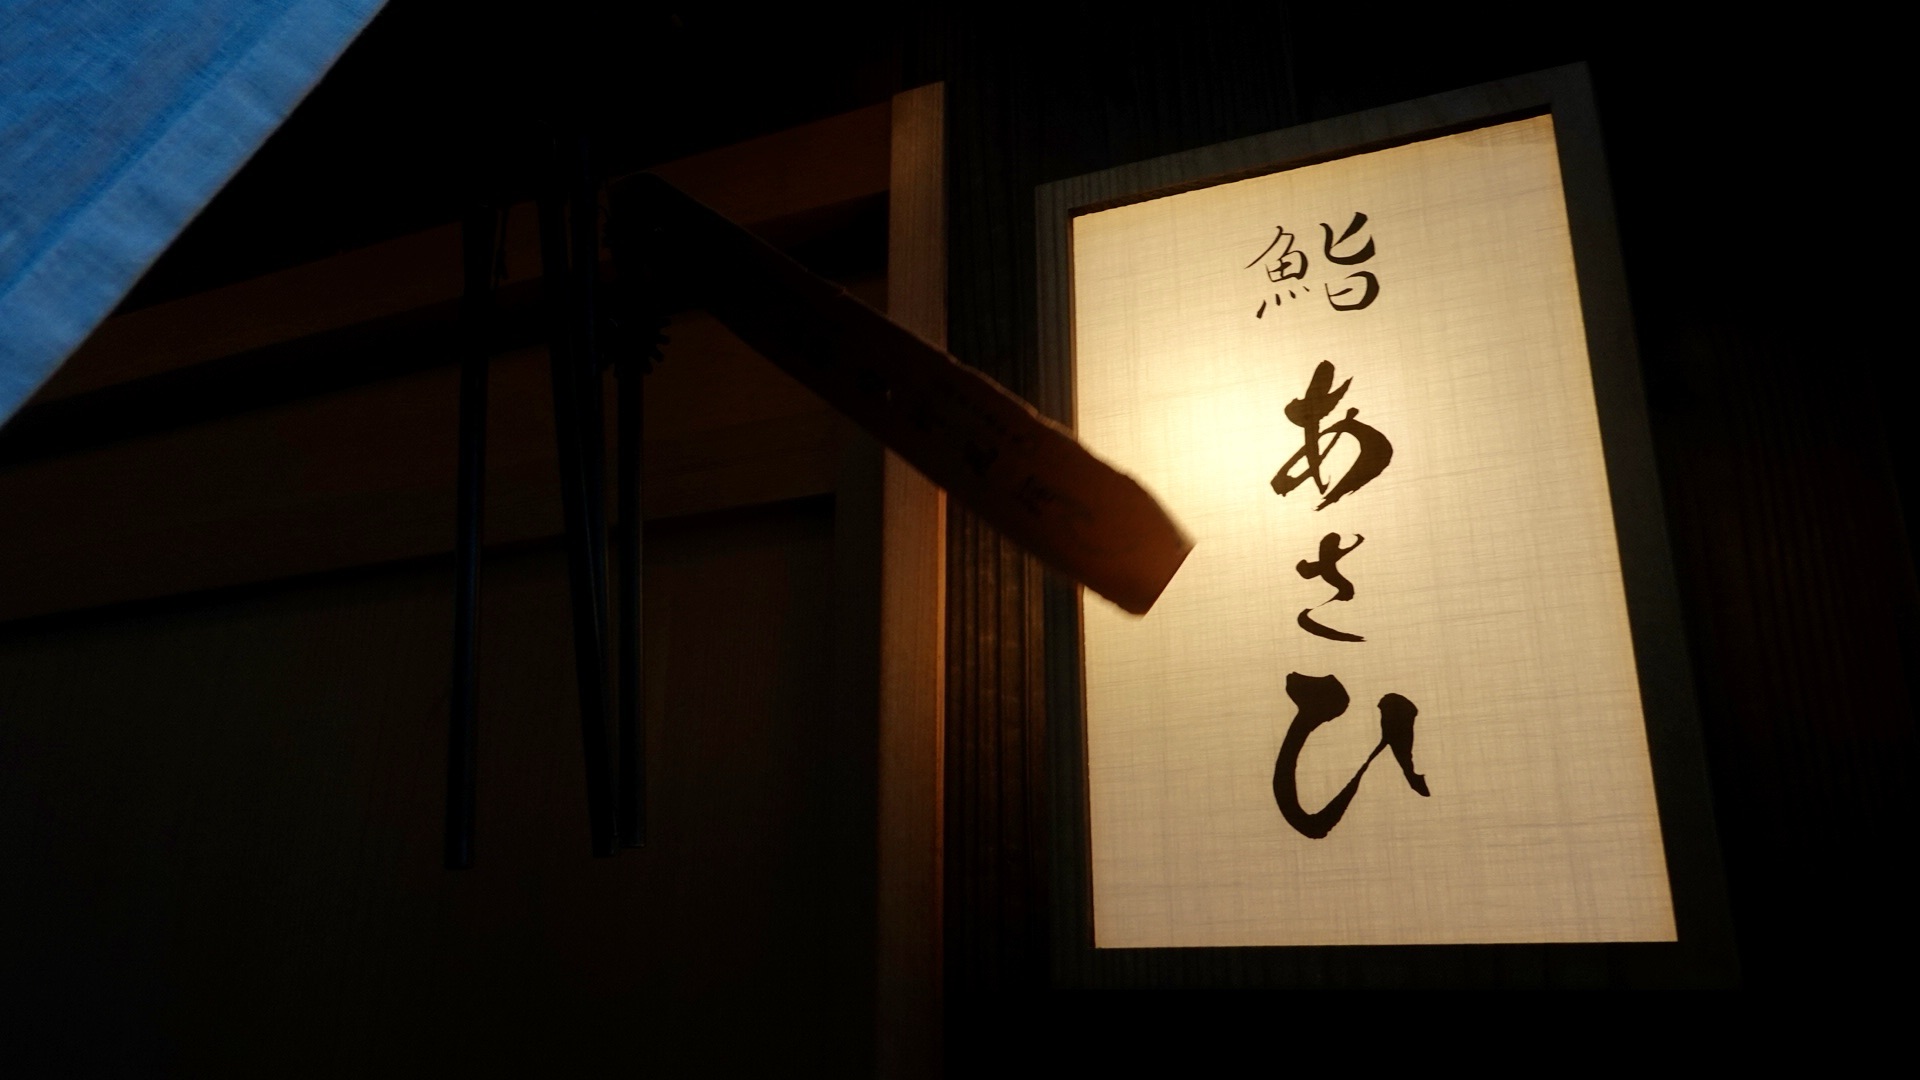 鮨
あさひ